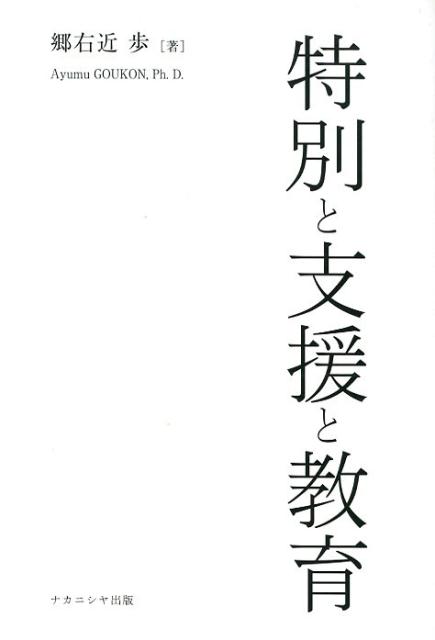 郷右近 歩 [著]
Ayumu GOUKON, Ph. D.
特別と支援と教育
ナカニシヤ出版